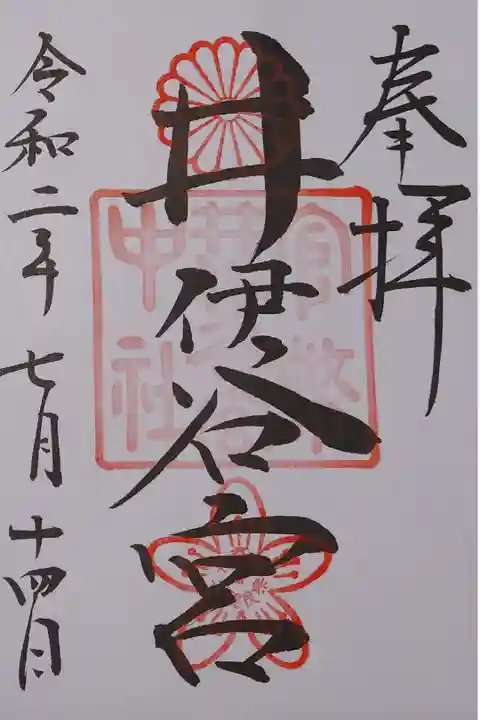 奉拝
井伊谷宮
官幣
中社
令和二年 七月 十四日